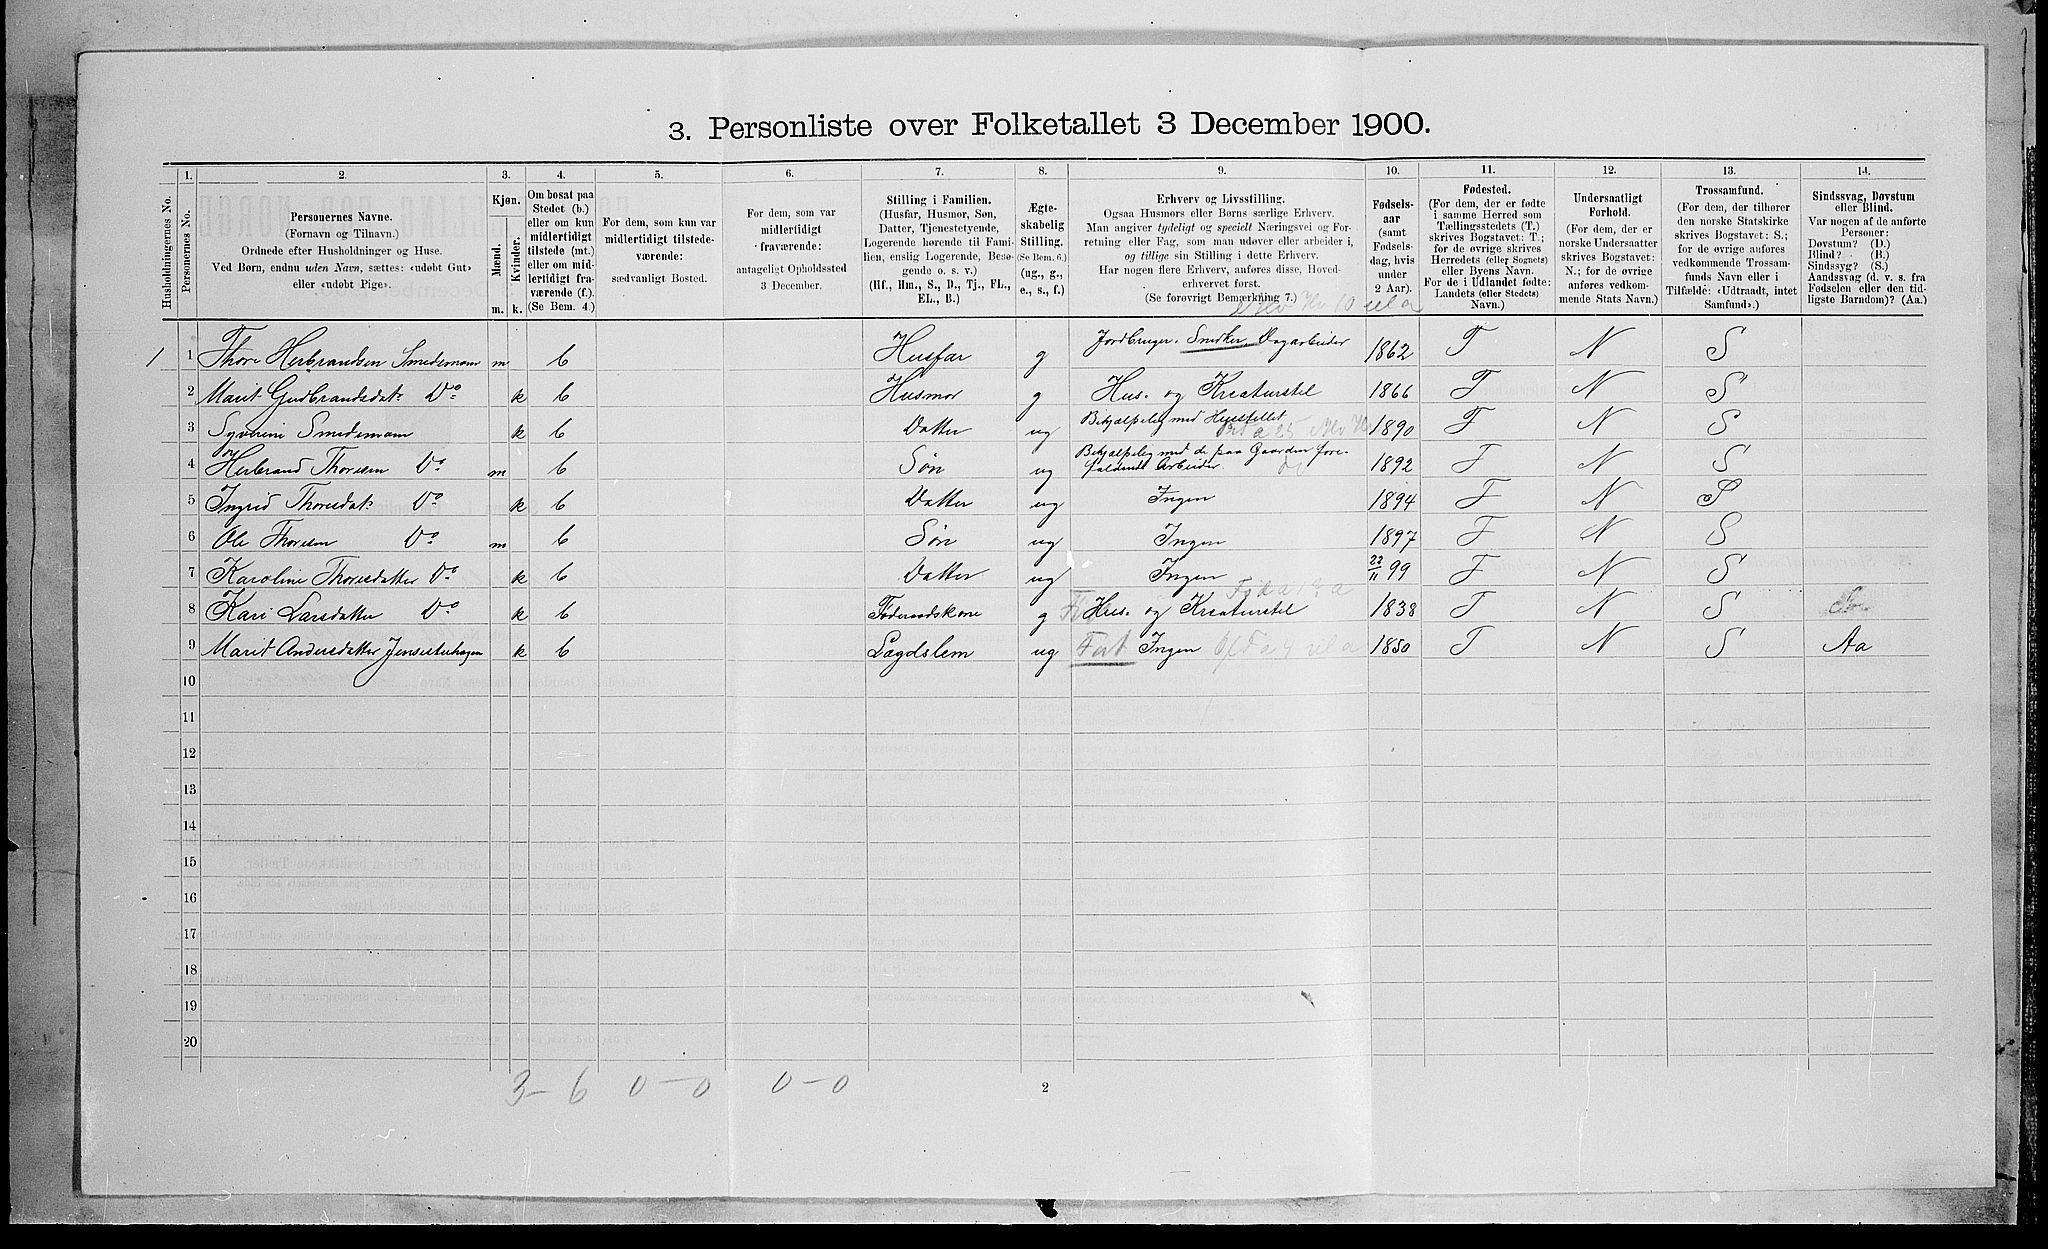 3. Personliste over Folketallet 3 December 1900.
1. 2. 3. 4. 5. 6. 7. 8. 9. 10. 11. 12. 13. 14.
Husholdningernes No.
Personernes No.
Personernes Navne.
(Fornavn og Tilnavn).
Ordnede efter Husholdninger og Huse.
Ved Børn, endnu uden Navn, sættes: «udøbt Gut»
eller «udøbt Pige».
Kjøn.
Mænd.
Kvinder.
m. k.
Om bosat paa
Stedet (b.)
eller om kun
midlertidigt
tilstede (mt.)
eller om mid-
lertidigt fra-
værende (f.).
(Se Bem. 4.)
For dem, som kun var
midlertidigt tilstede-
værende:
sædvanligt Bosted.
For dem, som var
midlertidigt
fraværende:
antageligt Opholdssted
3 December.
Stilling i Familien.
(Husfar, Husmor, Søn,
Datter, Tjenestetyende,
Logerende hørende til Fami-
lien, enslig Logerende, Besø-
gende o. s. v.)
(Hf., Hm., S., D., Tj., FL.,
EL., B.)
Ægte-
skabelig
Stilling.
(Se Bem. 6.)
(ug., g.,
e., s., f.)
Erhverv og Livsstilling.
Ogsaa Husmors eller Børns særlige Erhverv.
Man angiver tydeligt og specielt Næringsvei og For-
retning eller Fag, som man udøver eller arbeider i,
og tillige sin Stilling i dette Erhverv.
Har nogen flere Erhverv, anføres disse, Hoved-
erhvervet først.
(Se forøvrigt Bemærkning 7.)
Fødsels-
aar
(samt
Fødsels-
dag, hvis
under
2 Aar).
Fødested.
(For dem, der er fødte
i samme Herred som
Tællingsstedets (T.)
skrives Bogstavet: T.;
for de øvrige skrives
Herredets (eller Sognets)
eller Byens Navn.
For de i Udlandet fødte:
Landets (eller Stedets)
Navn.)
Undersaatligt
Forhold.
(For dem, der er
norske Undersaatter
skrives Bogstavet:
N.; for de øvrige
anføres vedkom-
mende Stats Navn.)
Trossamfund.
(For dem, der tilhører
den norske Statskirke
skrives Bogstavet: S.;
for de øvrige anføres
vedkommende Trossam-
funds Navn eller i
Tilfælde: «Udtraadt, intet
Samfund».)
Sindssvag, Døvstum
eller Blind.
Var nogen af de anførte
Personer:
Døvstum? (D.)
Blind? (B.)
Sindssyg? (S.)
Aandssvag (d. v. s. fra
Fødselen eller den tid-
ligste Barndom)? (Aa.)
1 1 Thore Herbrandsen Smedsmoen m b Husfar g Jordbruger. Snedker, Dagarbeider 1862 T N S
2 Marit Gudbrandsdatr Do k b Husmor g Hus. og Kreaturstel 1866 T N S
3 Syverine Smedsmoen k b Datter ug Behjælpelig med Husstellet 1890 T N S
4 Herbrand Thoresen Do m b Søn ug Behjælpelig med de paa Gaarden fore-
faldende Arbeider. 1892 T N S
5 Ingrid Thoresdatr Do k b Datter ug Ingen 1894 T N S
6 Ole Thoresen Do m b Søn ug Ingen 1897 T N S
7 Karoline Thoresdatter Do k b Datter ug Ingen 22/11 99 T N S
8 Kari Larsdatter Do k b Føderaadskone g Hus. og Kreaturstel 1838 T N S
9 Marit Andersdatter Jensestuhagen k b Lægdslem ug Fat Ingen 1850 T N S Aa
10
11
12
13
14
15
16
17
18
19
20
3 – 6 0 – 0 0 – 0
2